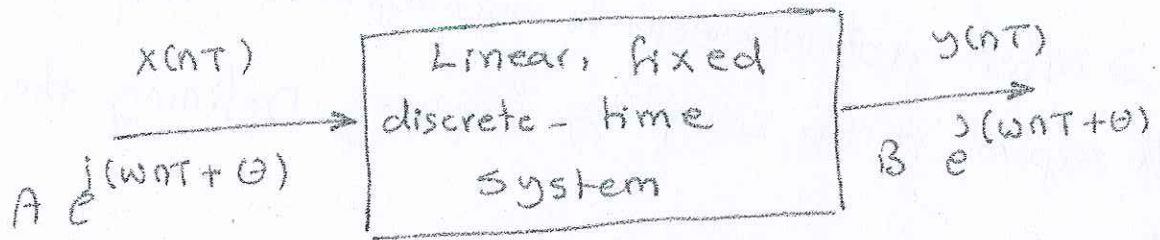 x(nT)
A e^j(ωnT + θ)
Linear, fixed
discrete-time
system
y(nT)
B e^j(ωnT + θ)